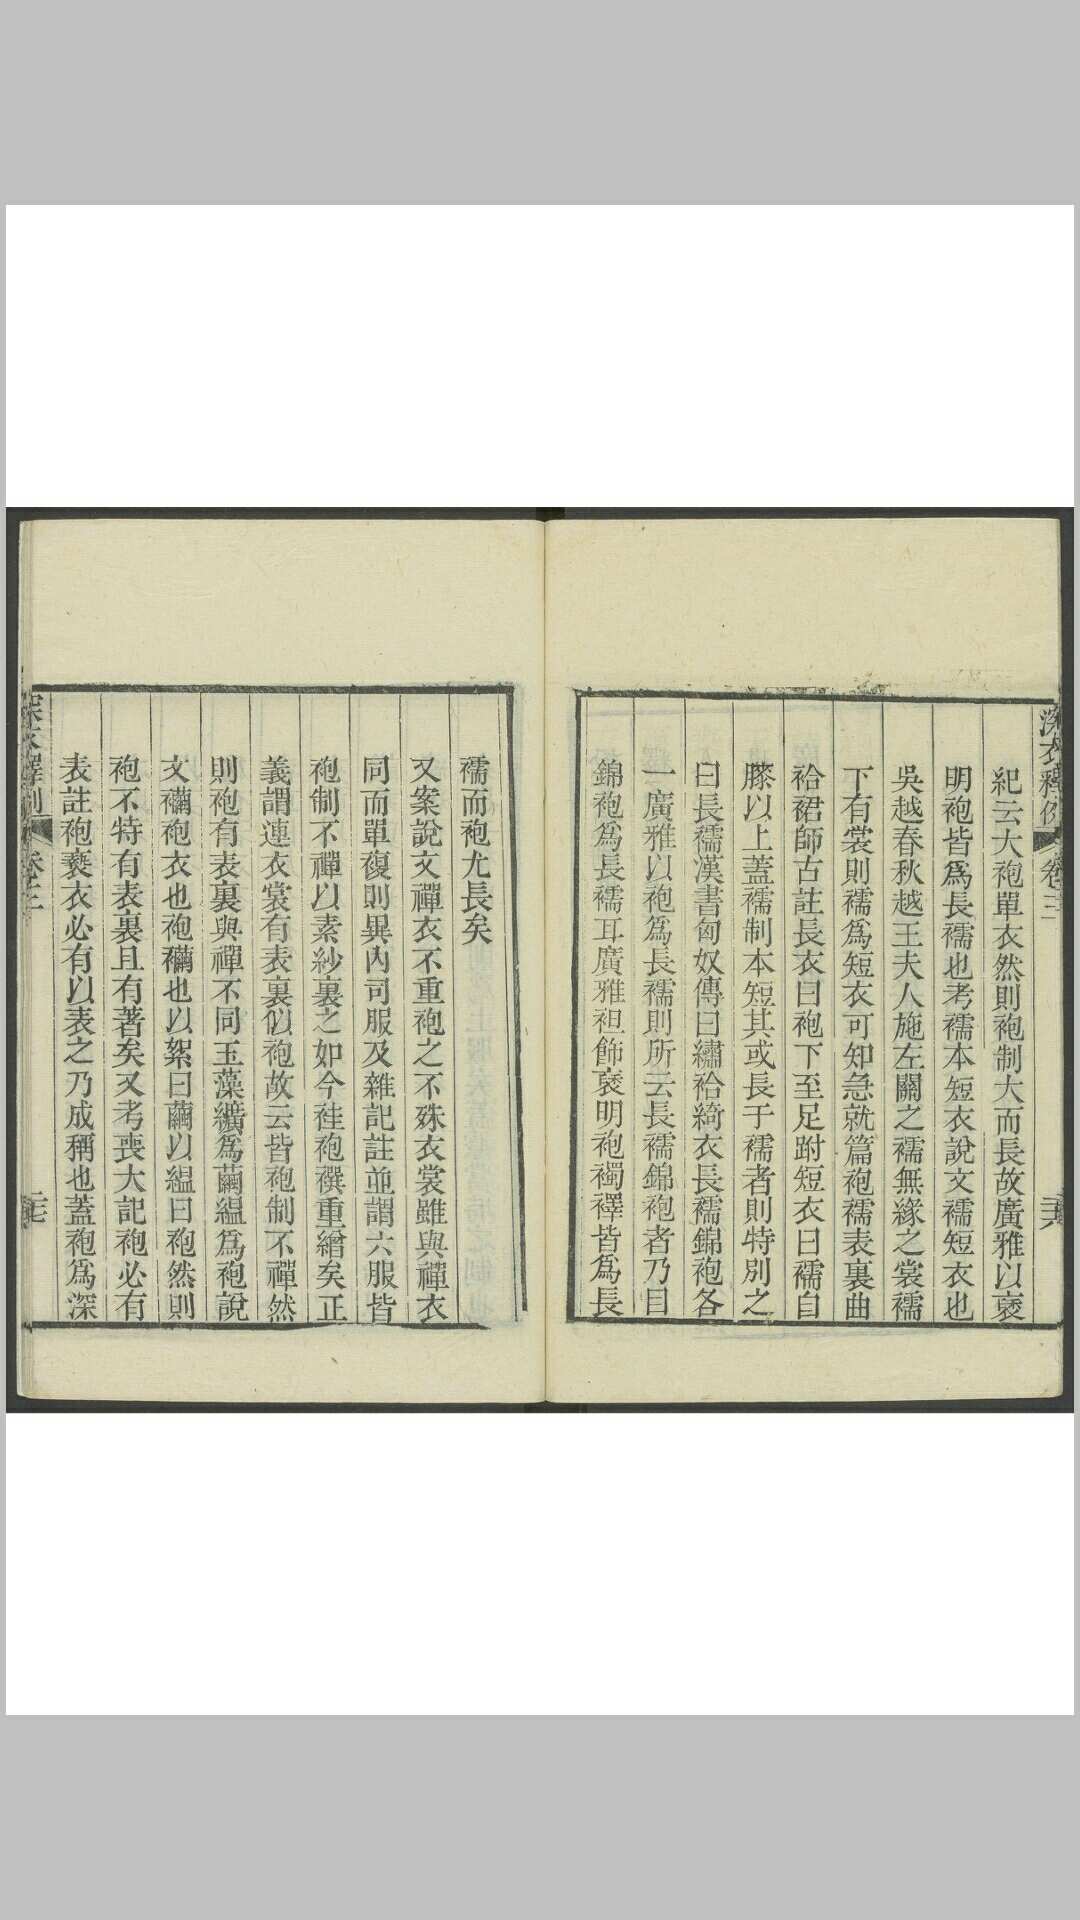 深衣釋例 卷三 三六
紀云大袍單衣然則袍制大而長故廣雅以褒
明袍皆爲長襦也考襦本短衣說文襦短衣也
吳越春秋越王夫人施左關之襦無緣之裳襦
下有裳則襦爲短衣可知急就篇袍襦表裏曲
袷裙師古註長衣曰袍下至足跗短衣曰襦自
膝以上蓋襦制本短其或長于襦者則特別之
曰長襦漢書匈奴傳曰繡袷綺衣長襦錦袍各
一廣雅以袍爲長襦則所云長襦錦袍者乃目
錦袍爲長襦耳廣雅袒飾褒明袍襡襗皆爲長
襦而袍尤長矣
又案說文襌衣不重袍之不殊衣裳雖與襌衣
同而單複則異內司服及雜記註並謂六服皆
袍制不襌以素紗裏之如今袿袍襈重繒矣正
義謂連衣裳有表裏似袍故云皆袍制不襌然
則袍有表裏與襌不同玉藻纊爲繭縕爲袍說
文襺袍衣也袍襺也以絮曰繭以縕曰袍然則
袍不特有表裏且有著矣又考喪大記袍必有
表註袍褻衣必有以表之乃成稱也蓋袍爲深
深衣釋例 卷三 三七